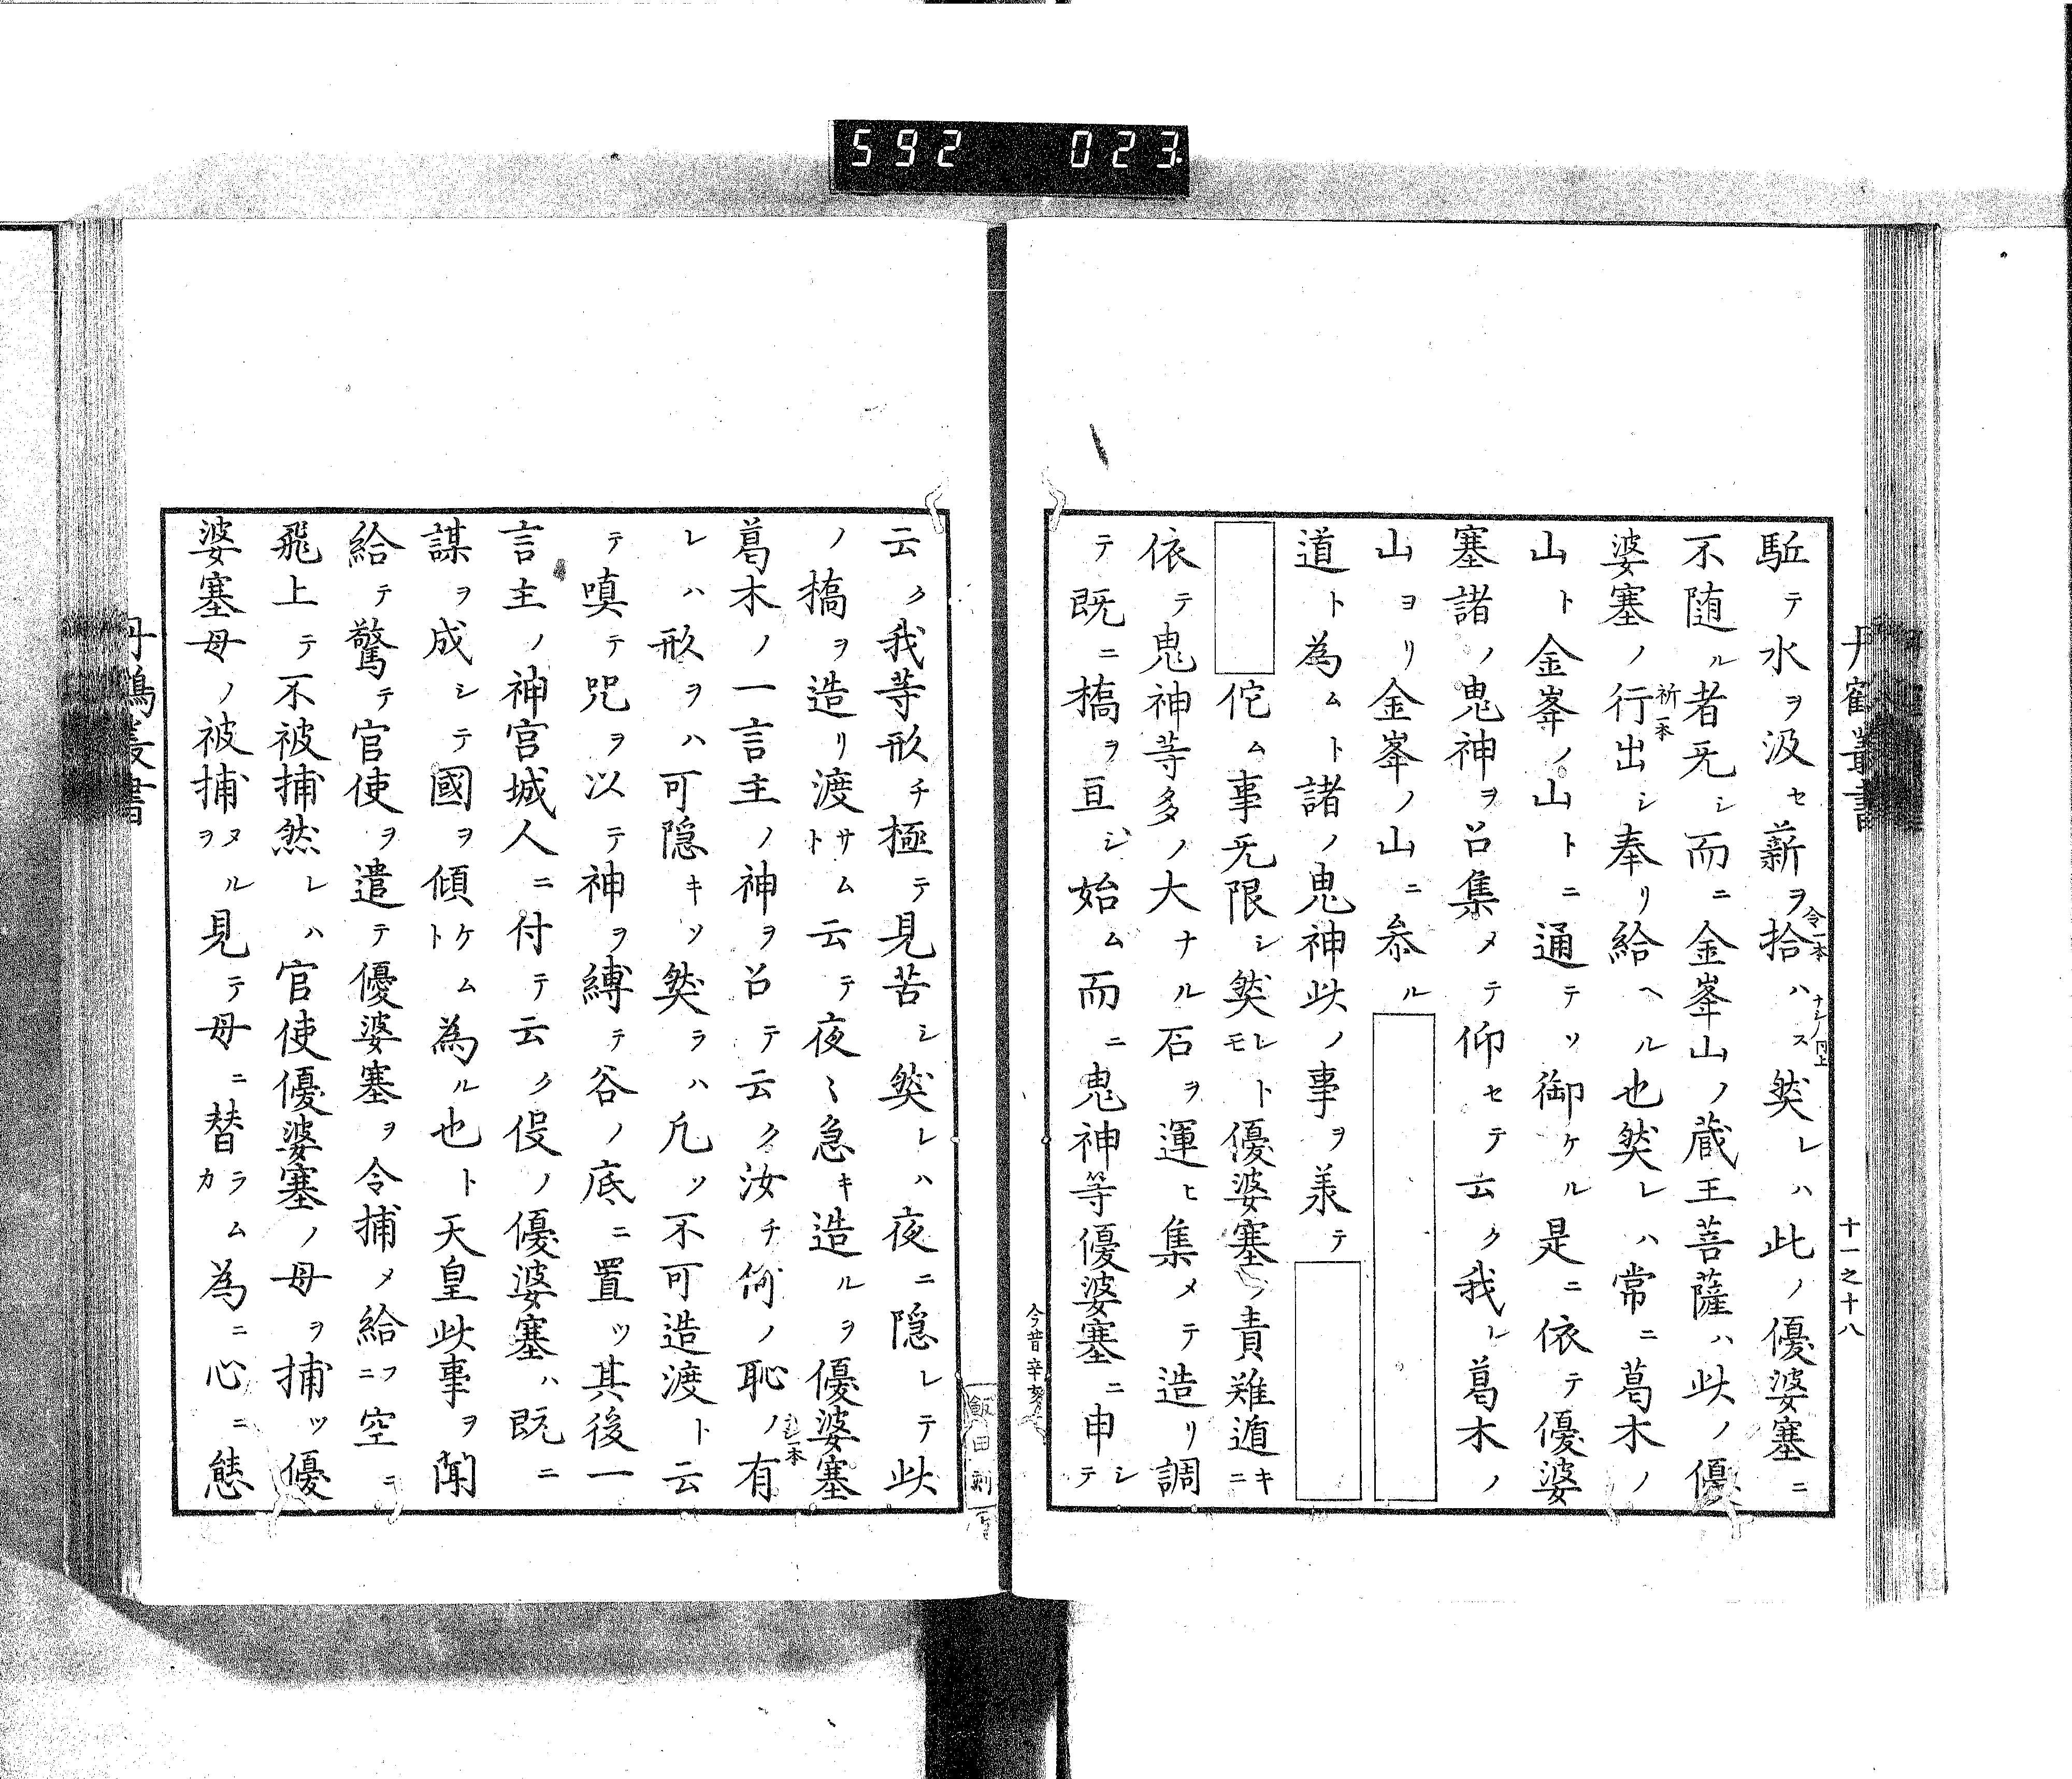 592 023
丹鶴叢書
十一之十八
駈テ水ヲ汲セ薪ヲ拾ハス然レハ此ノ優婆塞ニ
令一本
不随ル者无シ而ニ金峯山ノ蔵王菩薩ハ此ノ優
婆塞ノ行出シ奉リ給ヘル也然レハ常ニ葛木ノ
祈一本
山ト金峯ノ山トニ通テソ御ケル是ニ依テ優婆
塞諸ノ鬼神ヲ召集メテ仰セテ云ク我レ葛木ノ
山ヨリ金峯ノ山ニ参ル
道ト為ムト諸ノ鬼神此ノ事ヲ羕テ
佗ム事无限シ然レトモ優婆塞ノ責難遁キニ
依テ鬼神等多ノ大ナル石ヲ運ヒ集メテ造リ調
テ既ニ橋ヲ亘シ始ム而ニ鬼神等優婆塞ニ申シテ
今昔
飯田刻
云ク我等形チ極テ見苦シ然レハ夜ニ隠レテ此
ノ橋ヲ造リ渡サムト云テ夜〻急キ造ルヲ優婆塞
葛木ノ一言主ノ神ヲ召テ云ク汝チ何ノ恥ノ有
シ一本
レハ形ヲハ可隠キソ然ラハ凡ソ不可造渡ト云
テ嗔テ咒ヲ以テ神ヲ縛テ谷ノ底ニ置ツ其後一
言主ノ神宮城人ニ付テ云ク役ノ優婆塞ハ既ニ
謀ヲ成シテ國ヲ傾ケムト為ル也ト天皇此事ヲ聞
給テ驚テ官使ヲ遣テ優婆塞ヲ令捕メ給フニ空ニ
飛上テ不被捕然レハ官使優婆塞ノ母ヲ捕ツ優
婆塞母ノ被捕ヌルヲ見テ母ニ替ラムカ為ニ心ニ態
丹鶴叢書